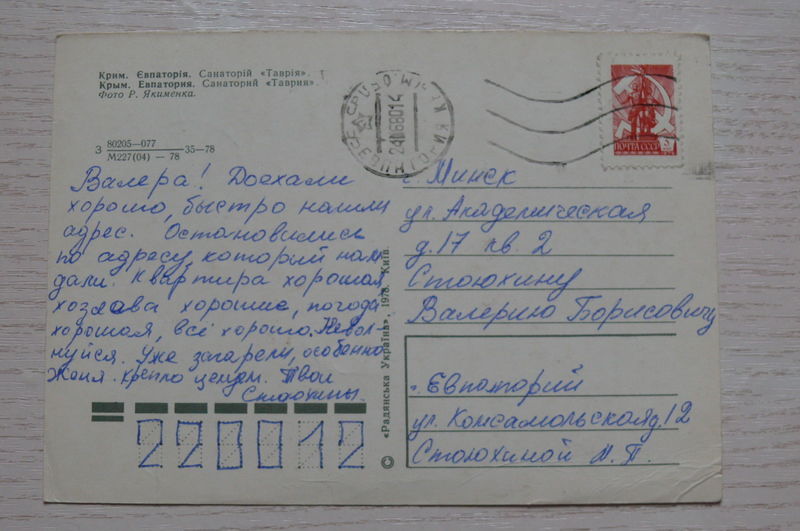 Крим. Євпаторія. Санаторій «Таврія».
Крым. Евпатория. Санаторий «Таврия».
Фото Р. Якименка.
З 80205—077 35—78
М227(04) — 78
Валера! Доехали
хорошо, быстро нашли
адрес. Остановились
по адресу, который нам
дали. Квартира хорошая
хозяева хорошие, погода
хорошая, всё хорошо. Не вол-
нуйся. Уже загорели, особенно
Женя. Крепко целуем. Твои
Стоюхины.
220012
«Радянська Україна», 1978. Київ.
©
ПОЧТА СССР
г. Минск
ул. Академическая
д. 17 кв. 2
Стоюхину
Валерию Борисовичу
г. Евпаторий
ул. Комсамольская д, 12
Стоюхиной Н. П.